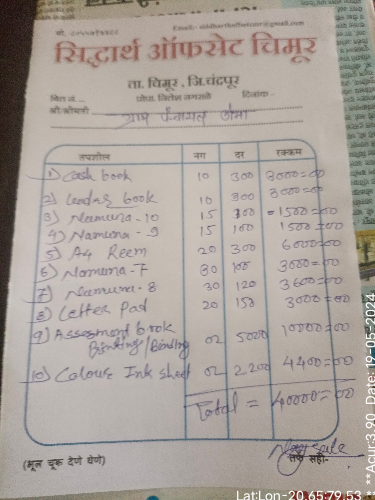 मो. Email:- siddharthoffsetcmr@gmail.com
सिद्धार्थ ऑफसेट चिमूर
ता. चिमूर, जि.चंद्रपूर
बिल नं. प्रोप्रा. दिनांक
श्री/श्रीमती ग्राम पंचायत
तपशील नग दर रक्कम
1) Cash book 10 300 3000=00
2) Ledar book 10 300 3000=00
3) Namuna-10 15 100 1500=00
4) Namuna-9 15 100 1500=00
5) A4 Reem 20 300 6000=00
6) Namuna-7 30 100 3000=00
7) Namuna-8 30 120 3600=00
8) Letter Pad 20 150 3000=00
9) Assesment book 02 5000 10000=00
Binding/Binding
10) Colour Ink sheet 02 2200 4400=00
Total = 40000=00
(भूल चूक देणे घेणे) सही-
Lat:Lon-20.65:79.53
**Aqur:3.90, Date: 19-05-2024